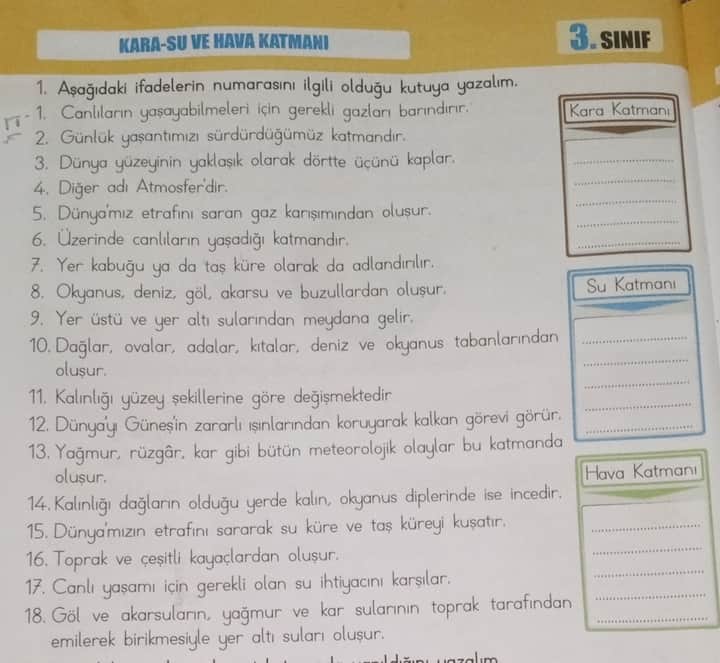 KARA-SU VE HAVA KATMANI
3. SINIF
1. Aşağıdaki ifadelerin numarasını ilgili olduğu kutuya yazalım.
1. Canlıların yaşayabilmeleri için gerekli gazları barındırır.
2. Günlük yaşantımızı sürdürdüğümüz katmandır.
3. Dünya yüzeyinin yaklaşık olarak dörtte üçünü kaplar.
4. Diğer adı Atmosfer'dir.
5. Dünya'mız etrafını saran gaz karışımından oluşur.
6. Üzerinde canlıların yaşadığı katmandır.
7. Yer kabuğu ya da taş küre olarak da adlandırılır.
8. Okyanus, deniz, göl, akarsu ve buzullardan oluşur.
9. Yer üstü ve yer altı sularından meydana gelir.
10. Dağlar, ovalar, adalar, kıtalar, deniz ve okyanus tabanlarından
oluşur.
11. Kalınlığı yüzey şekillerine göre değişmektedir
12. Dünya'yı Güneş'in zararlı ışınlarından koruyarak kalkan görevi görür.
13. Yağmur, rüzgâr, kar gibi bütün meteorolojik olaylar bu katmanda
oluşur.
14. Kalınlığı dağların olduğu yerde kalın, okyanus diplerinde ise incedir.
15. Dünya'mızın etrafını sararak su küre ve taş küreyi kuşatır.
16. Toprak ve çeşitli kayaçlardan oluşur.
17. Canlı yaşamı için gerekli olan su ihtiyacını karşılar.
18. Göl ve akarsuların, yağmur ve kar sularının toprak tarafından
emilerek birikmesiyle yer altı suları oluşur.
Kara Katmanı
Su Katmanı
Hava Katmanı
yazalım